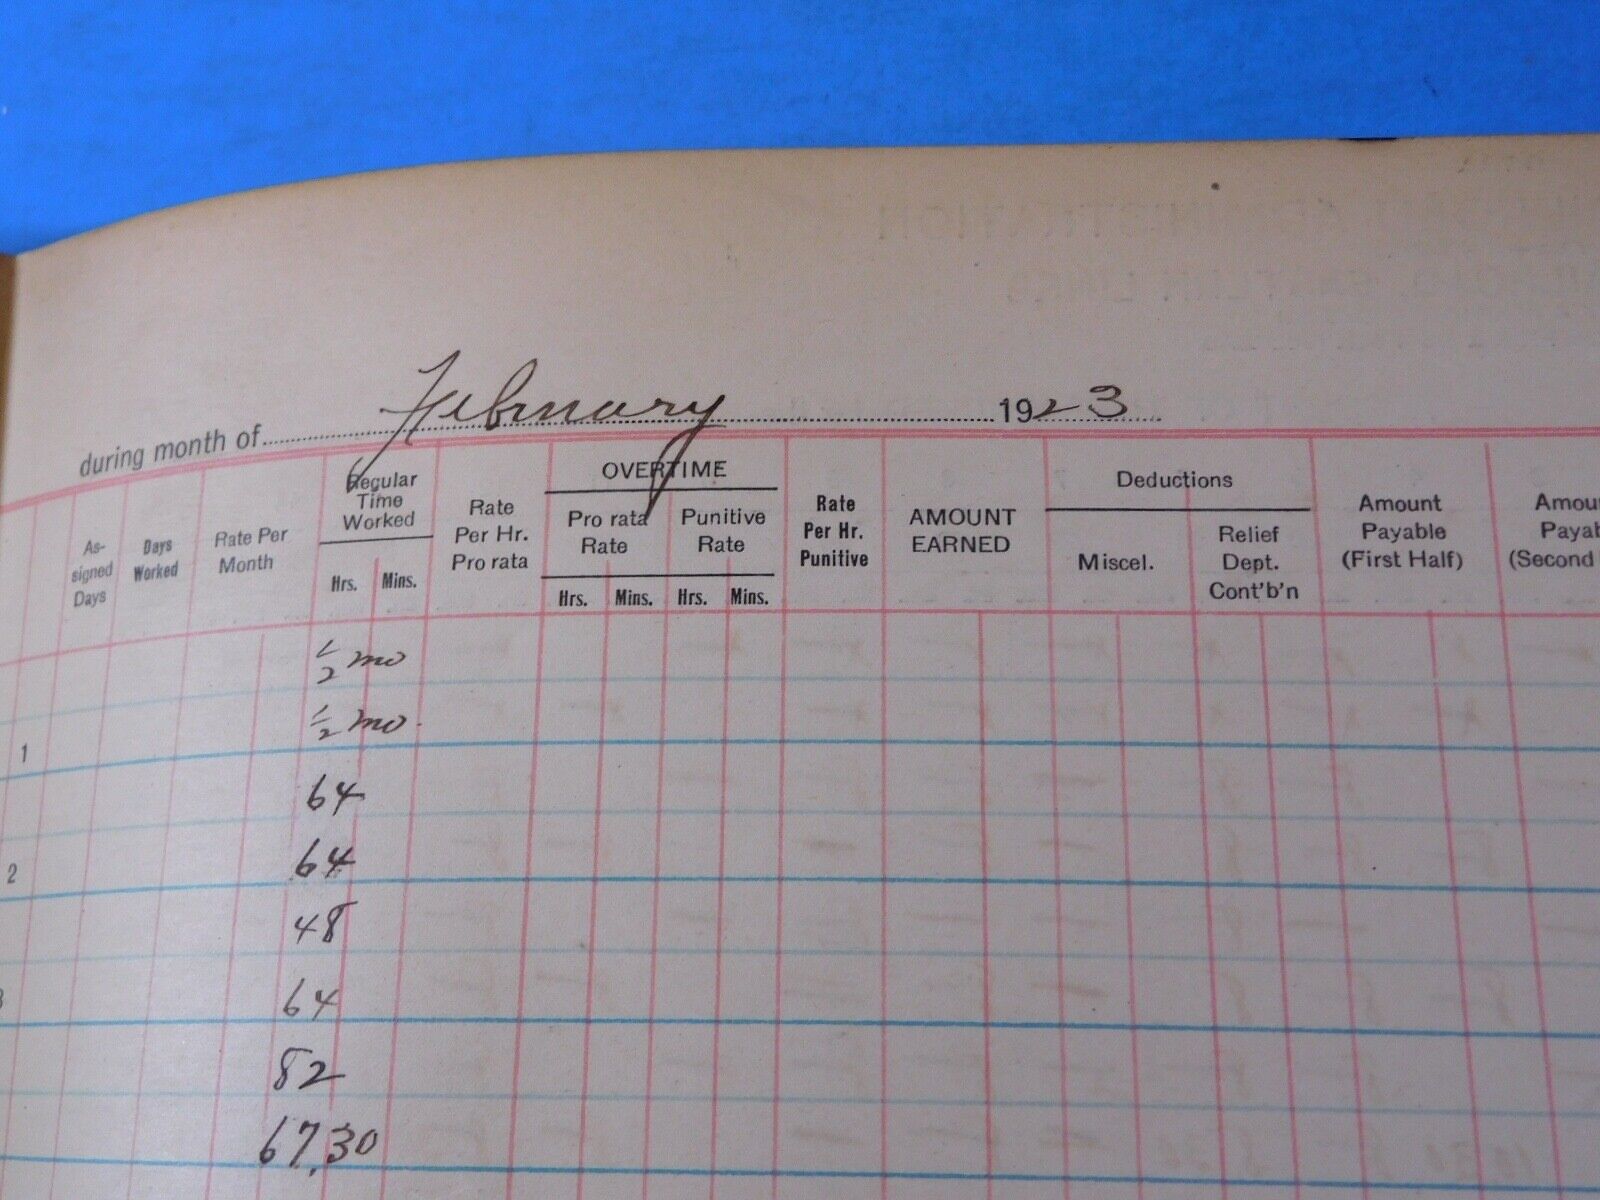 during month of February 1923
Regular Time Worked
Rate Per Hr. Pro rata
OVERTIME
Rate Per Hr. Punitive
AMOUNT EARNED
Deductions
Amount Payable (First Half)
As-signed Days
Days Worked
Rate Per Month
Pro rata Rate
Punitive Rate
Miscel.
Relief Dept. Cont'b'n
Hrs. Mins.
Hrs. Mins. Hrs. Mins.
1/2 mo
1 1/2 mo.
64
2 64
48
3 64
82
67.30